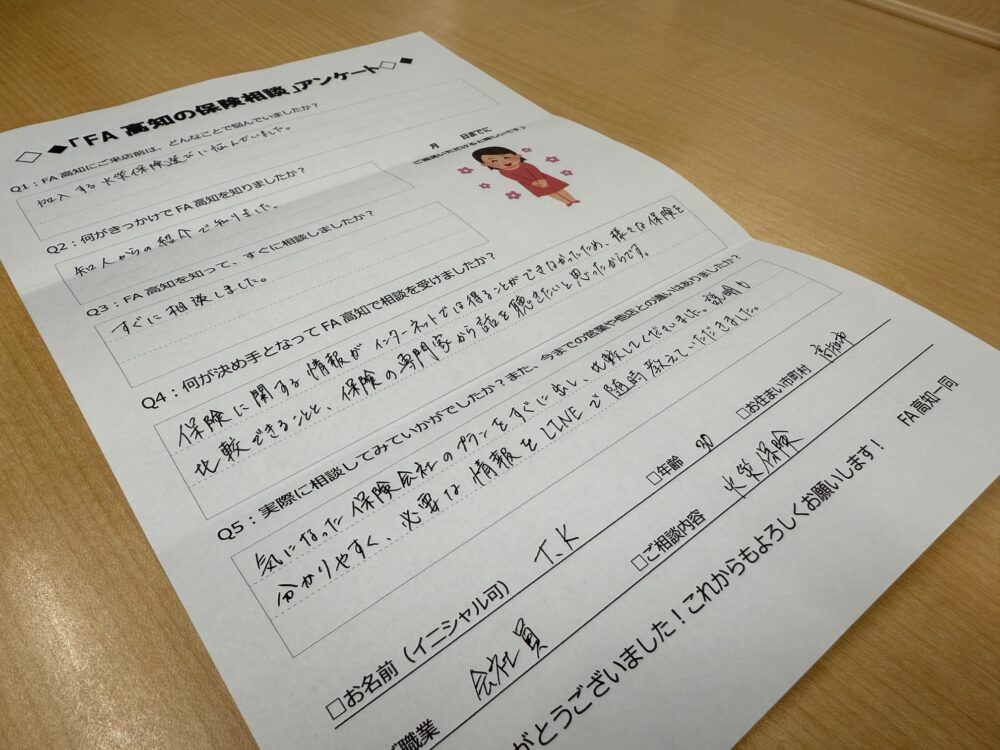 ◇◆「FA高知の保険相談」アンケート◇◆
Q1：FA高知にご来店前は、どんなことで悩んでいましたか？
加入する火災保険選びに悩んでいました。
月 日までに
Q2：何がきっかけでFA高知を知りましたか？
知人からの紹介で知りました。
Q3：FA高知を知って、すぐに相談しましたか？
すぐに相談しました。
Q4：何が決め手となってFA高知で相談を受けましたか？
保険に関する情報がインターネットでは得ることができなかったため、様々な保険を
比較できることと、保険の専門家から話を聴きたいと思ったからです。
Q5：実際に相談してみていかがでしたか？また、今までの営業や他店との違いはありましたか？
気になった保険会社のプランをすぐに出し、比較してくださいました。説明も
分かりやすく、必要な情報をLINEで随時教えていただきました。
□お名前（イニシャル可） T.K □年齢 □お住まい市町村 高知市
職業 会社員 □ご相談内容 火災保険
がとうございました！これからもよろしくお願いします！
FA高知一同